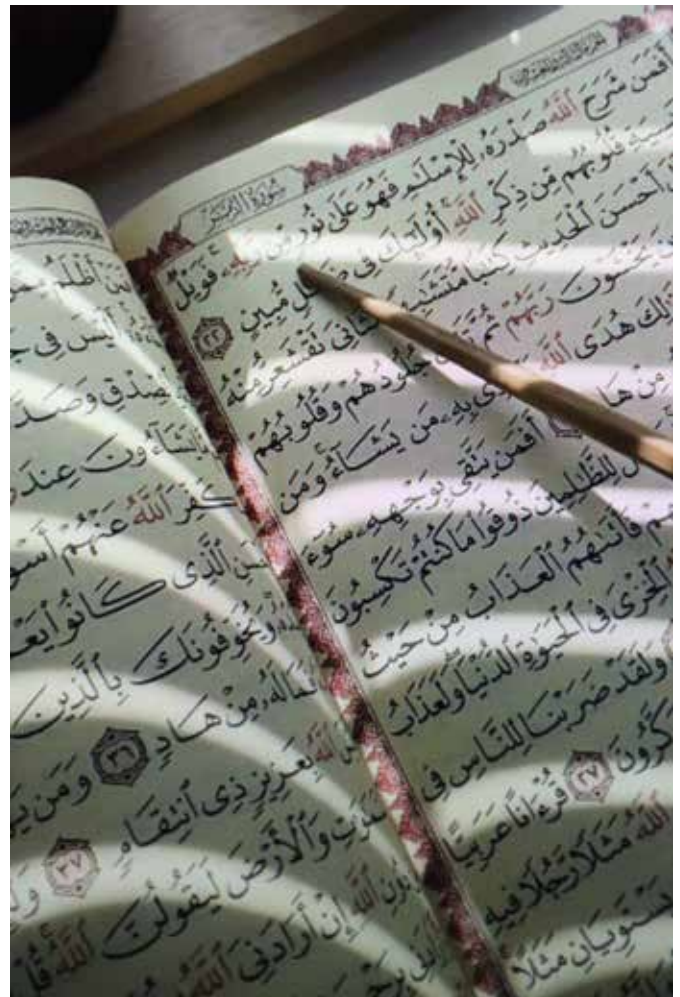 الجزء الثالث والعشرون
سورة الزمر
أَفَمَن شَرَحَ ٱللَّهُ صَدْرَهُۥ لِلْإِسْلَٰمِ فَهُوَ عَلَىٰ نُورٍ مِّن رَّبِّهِۦ ۚ فَوَيْلٌ
قُلُوبُهُم مِّن ذِكْرِ ٱللَّهِ ۚ أُو۟لَٰٓئِكَ فِى ضَلَٰلٍ مُّبِينٍ ٢٢
أَحْسَنَ ٱلْحَدِيثِ كِتَٰبًا مُّتَشَٰبِهًا مَّثَانِىَ تَقْشَعِرُّ مِنْهُ
يَخْشَوْنَ رَبَّهُمْ ثُمَّ تَلِينُ جُلُودُهُمْ وَقُلُوبُهُمْ
ذَٰلِكَ هُدَى ٱللَّهِ يَهْدِى بِهِۦ مَن يَشَآءُ ۚ وَمَن
مِنْ هَادٍ أَفَمَن يَتَّقِى بِوَجْهِهِۦ سُوٓءَ
لِلظَّٰلِمِينَ ذُوقُوا۟ مَا كُنتُمْ تَكْسِبُونَ
فَأَتَىٰهُمُ ٱلْعَذَابُ مِنْ حَيْثُ
ٱلْخِزْىَ فِى ٱلْحَيَوٰةِ ٱلدُّنْيَا ۖ وَلَعَذَابُ
وَلَقَدْ ضَرَبْنَا لِلنَّاسِ فِى
٢٧ قُرْءَانًا عَرَبِيًّا
ٱللَّهُ مَثَلًا رَّجُلًا فِيهِ
يَسْتَوِيَانِ مَثَلًا
أَظْلَمُ مِمَّن
أَلَيْسَ فِى
بِٱلصِّدْقِ وَصَدَّقَ
يَشَآءُونَ عِندَ
كَفِّرَ ٱللَّهُ عَنْهُمْ أَسْوَأَ
ٱلَّذِى كَانُوا۟
وَيُخَوِّفُونَكَ بِٱلَّذِينَ
فَمَا لَهُۥ مِنْ هَادٍ ٣٦ وَمَن
ٱللَّهُ بِعَزِيزٍ ذِى ٱنتِقَامٍ ٣٧
وَٱلْأَرْضَ لَيَقُولُنَّ ٱللَّهُ ۚ قُلْ
ٱللَّهِ إِنْ أَرَادَنِىَ ٱللَّهُ